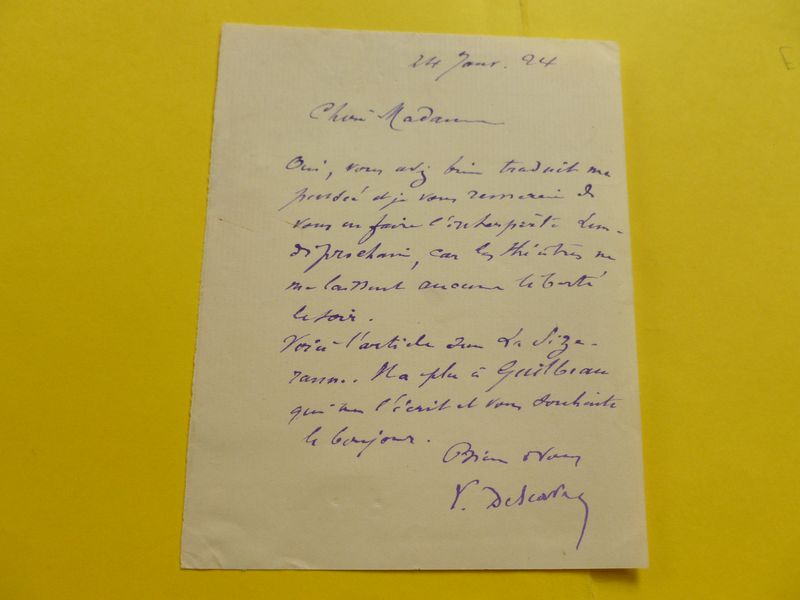 24 Janv. 24
Chère Madame
Oui, vous avez bien traduit ma
pensée et je vous remercie de
vous en faire l'interprète Lun-
di prochain, car les théâtres ne
me laissent aucune liberté
le soir.
Voici l'article sur La Size-
ranne. Il a plu à Guilbeau
qui me l'écrit et vous souhaite
le bonjour.
Bien vôtre
L. Descaves